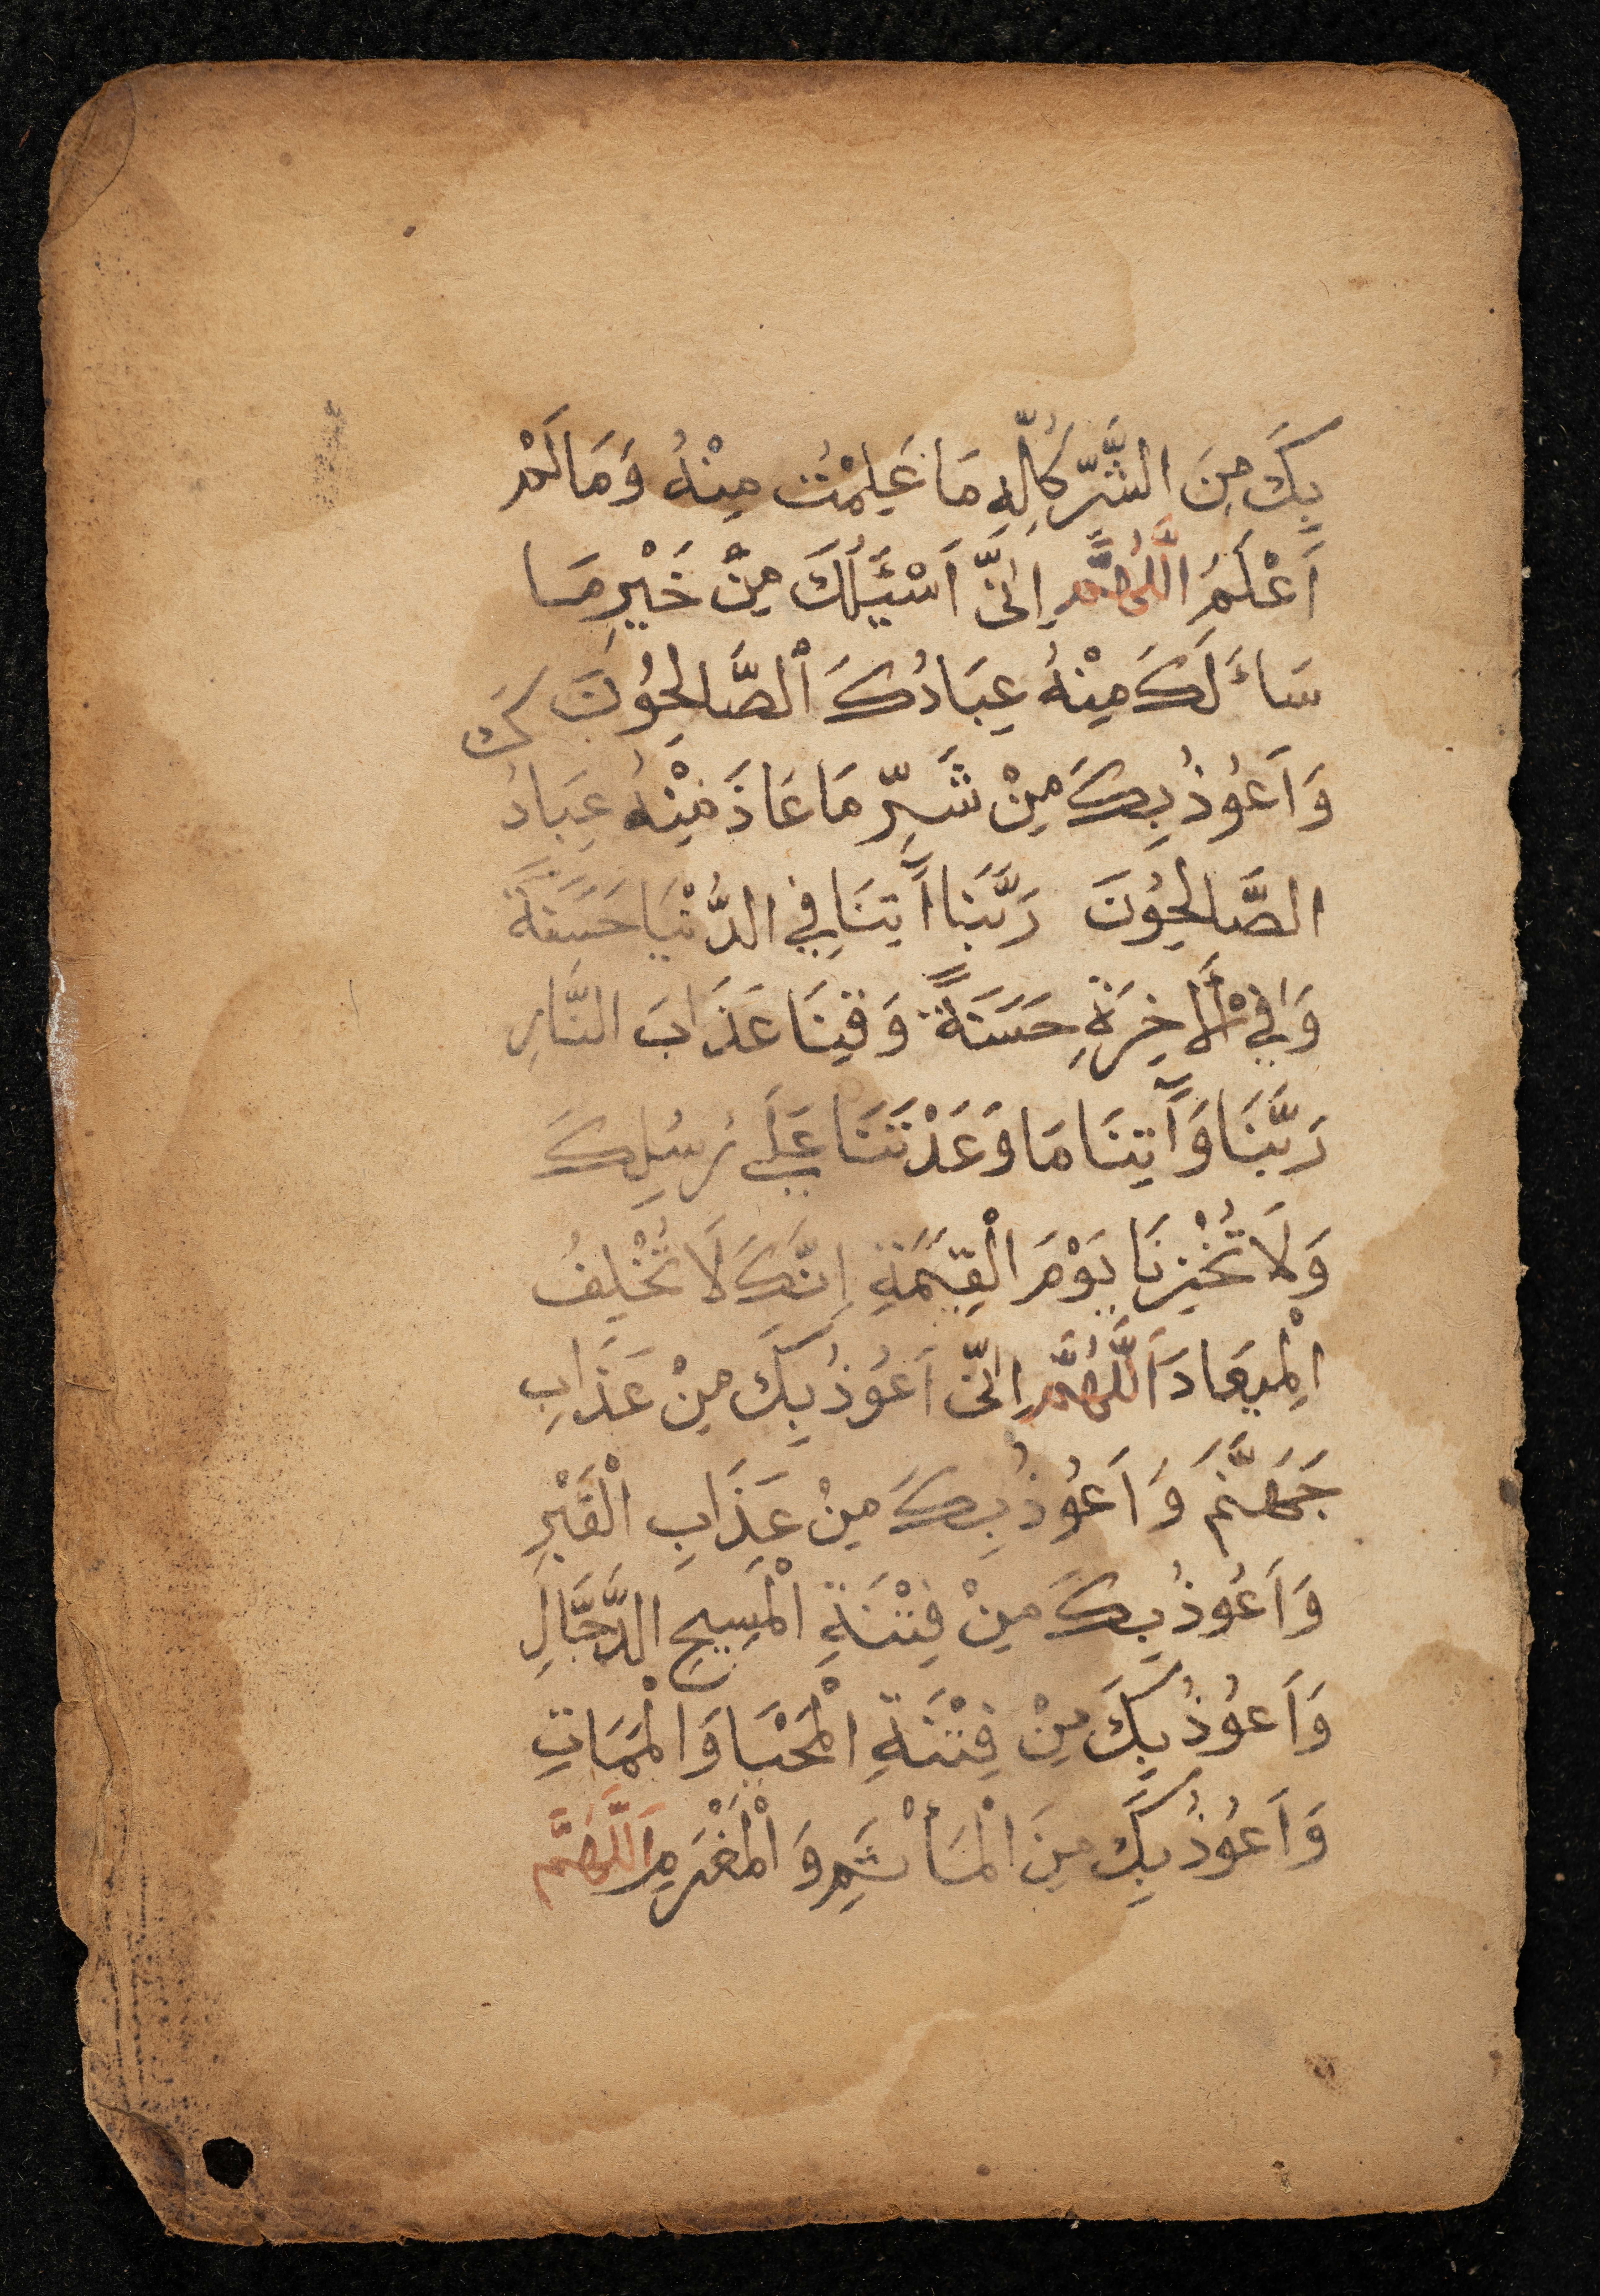 بِكَ مِنَ الشَّرِّ كُلِّهِ مَا عَلِمْتُ مِنْهُ وَمَا لَمْ
اَعْلَمُ اللَّهُمَّ اِنّىِ اَسْئَلُكَ مِنْ خَيْرِ مَا
سَاءَلَكَ مِنْهُ عِبَادُكَ اْلصَّالِحُوُنَ
وَاَعُوُذُ بِكَ مِنْ شَرِّ مَا عَاذَ مِنْهُ عِبَادُكَ
الصَّالِحُوُنَ رَبَّنَا آَتِنَا فِي الدُّنْيَا حَسَنَةً
وَفِي اْلأَخِرَةِ حَسَنَةً وَقِنَا عَذَابَ النَّارِ
رَبَّنَا وَآَتِنَا مَا وَعَدْتَنَا عَلَي رُسُلِكَ
وَلَا تُخْزِنَا يَوْمَ الْقِيَمَةِ اِنَّكَ لَا تُخْلِفُ
الْمِيعَادَ اَللَّهُمَّ اِنّىِ اَعُوُذُ بِكَ مِنْ عَذَابِ
جَهَنَّمَ وَاَعُوُذُ بِكَ مِنْ عَذَابِ الْقَبْرِ
وَاَعُوُذُ بِكَ مِنْ فِتْنَةِ الْمَسِيحِ الدَّجَّالِ
وَاَعُوُذُ بِكَ مِنْ فِتْنَةِ الْمَحْيَا وَالْمَمَاتِ
وَاَعُوُذُ بِكَ مِنَ الْمَأْثَمِ وَالْمَغْرَمِ اَللَّهُمَّ